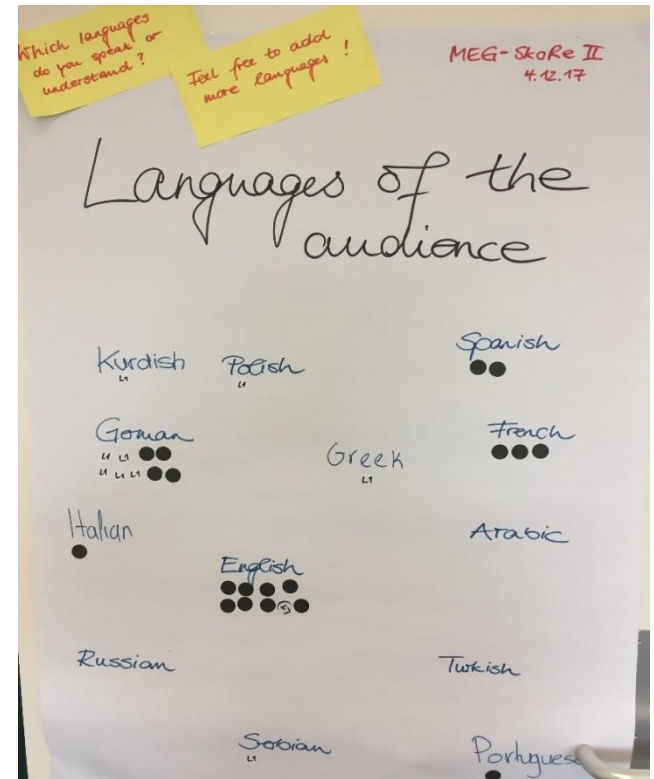 Which languages
do you speak or
understand?
Feel free to add
more languages!
MEG-SkoRe II
4.12.17
Languages of the
audience
Kurdish
L1
Polish
L1
Spanish
German
L1 L1
L1 L1 L1
French
Greek
L1
Italian
Arabic
English
Russian
Turkish
Serbian
L1
Portuguese